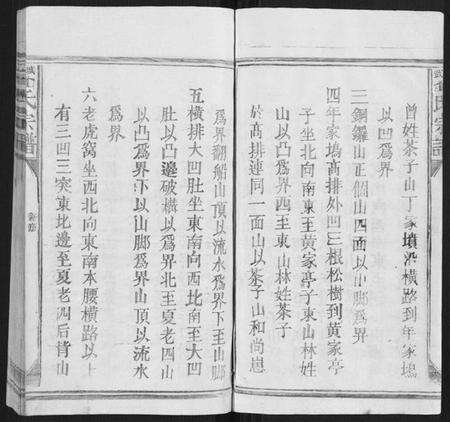 曾姓茶子山丁家墳沿橫路到年家塢
以凹爲界
三銅鑼山正個山四面以山脚爲界
四年家塢高排外凹三根松樹到黃家亭
子坐北向南東至黃家亭子東山林姓
山以凸爲界西至東山林姓茶子
於高排連同一面山以茶子山和尚思
爲界翻船山頂以流水爲界下至山脚
五橫排大凹肚坐東南向西北南至大凹
肚以凸邊破橫以爲界北至夏老四山
以凸爲界下以山脚爲界山頂以流水
爲界
六老虎窩坐西北向東南本腰橫路以上
有三凹三突東北邊至夏老四后背山
氏宗譜